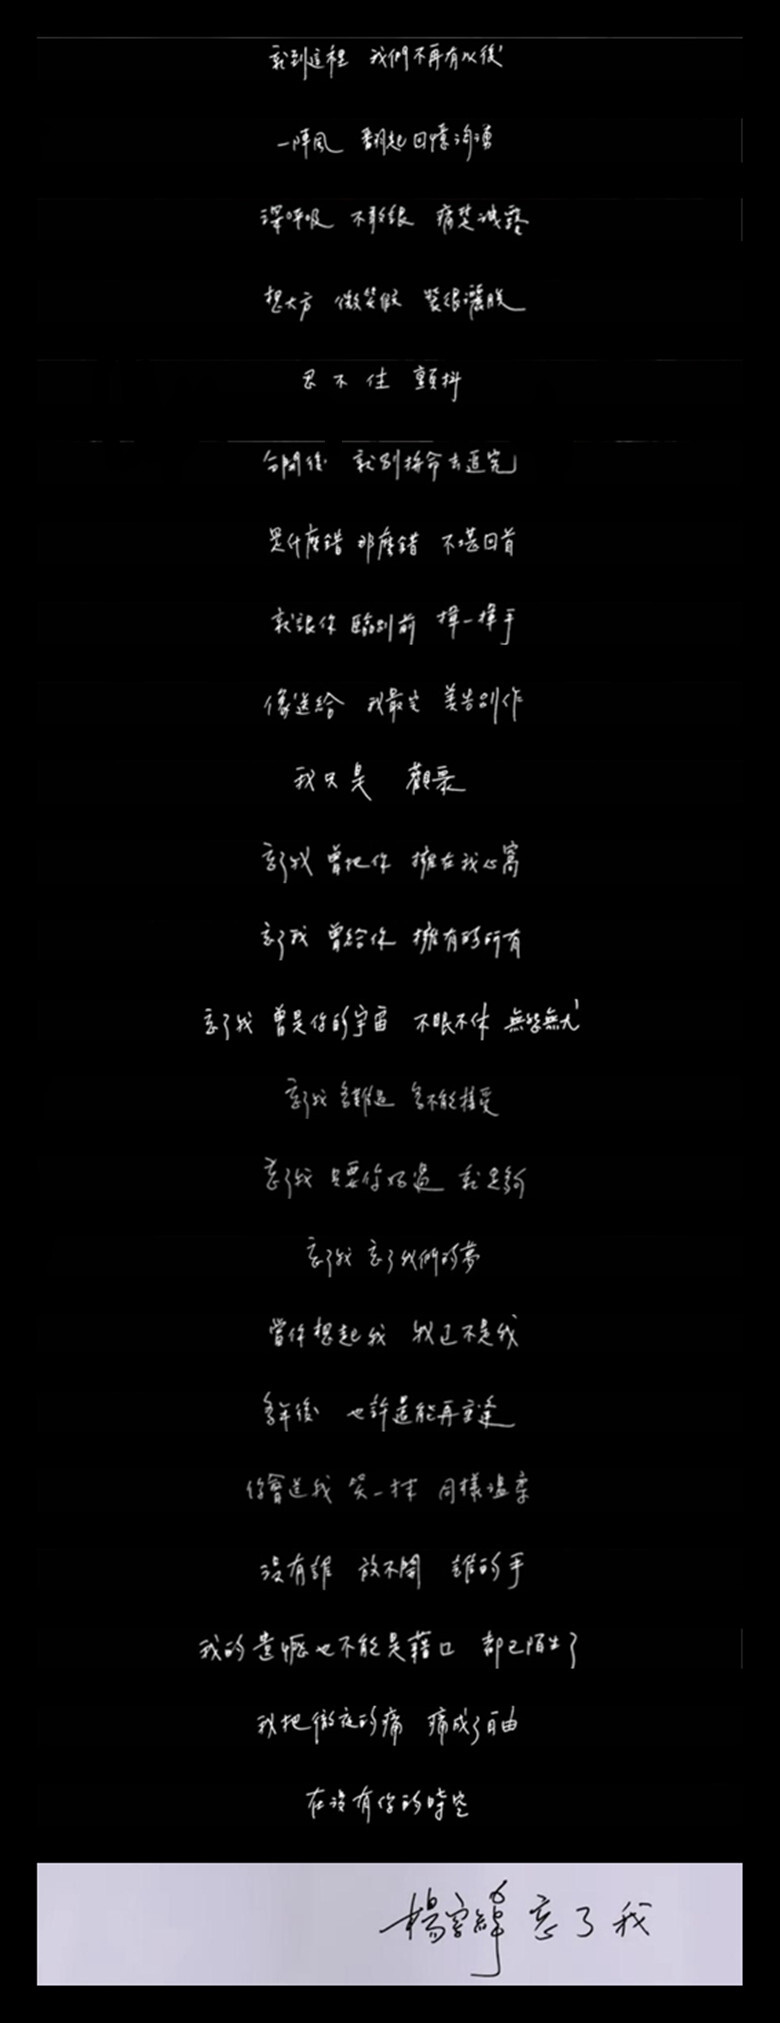 就到這裡 我們不再有以後
一陣風 翻起回憶洶湧
深呼吸 不敢哭 痛楚洩露
想大方 微笑假 裝很灑脫
忍不住 顫抖
分開後 就別拚命去追究
是什麼錯 那麼錯 不堪回首
就跟你 臨別前 揮一揮手
像送給 我最完 美告別作
我只是 觀眾
忘了我 曾把你 擁在我心窩
忘了我 曾給你 擁有的所有
忘了我 曾是你的宇宙 不眠不休 無怨無尤
忘了我 多難過 多不能接受
忘了我 只要你好過 就足夠
忘了我 忘了我們的夢
當你想起我 我已不是我
多年後 也許還能再重逢
你會送我 笑一抹 同樣溫柔
沒有誰 放不開 誰的手
我的遺憾也不能是藉口 都已陌生了
我把徹夜的痛 痛成了自由
在沒有你的時空
楊宗緯 忘了我